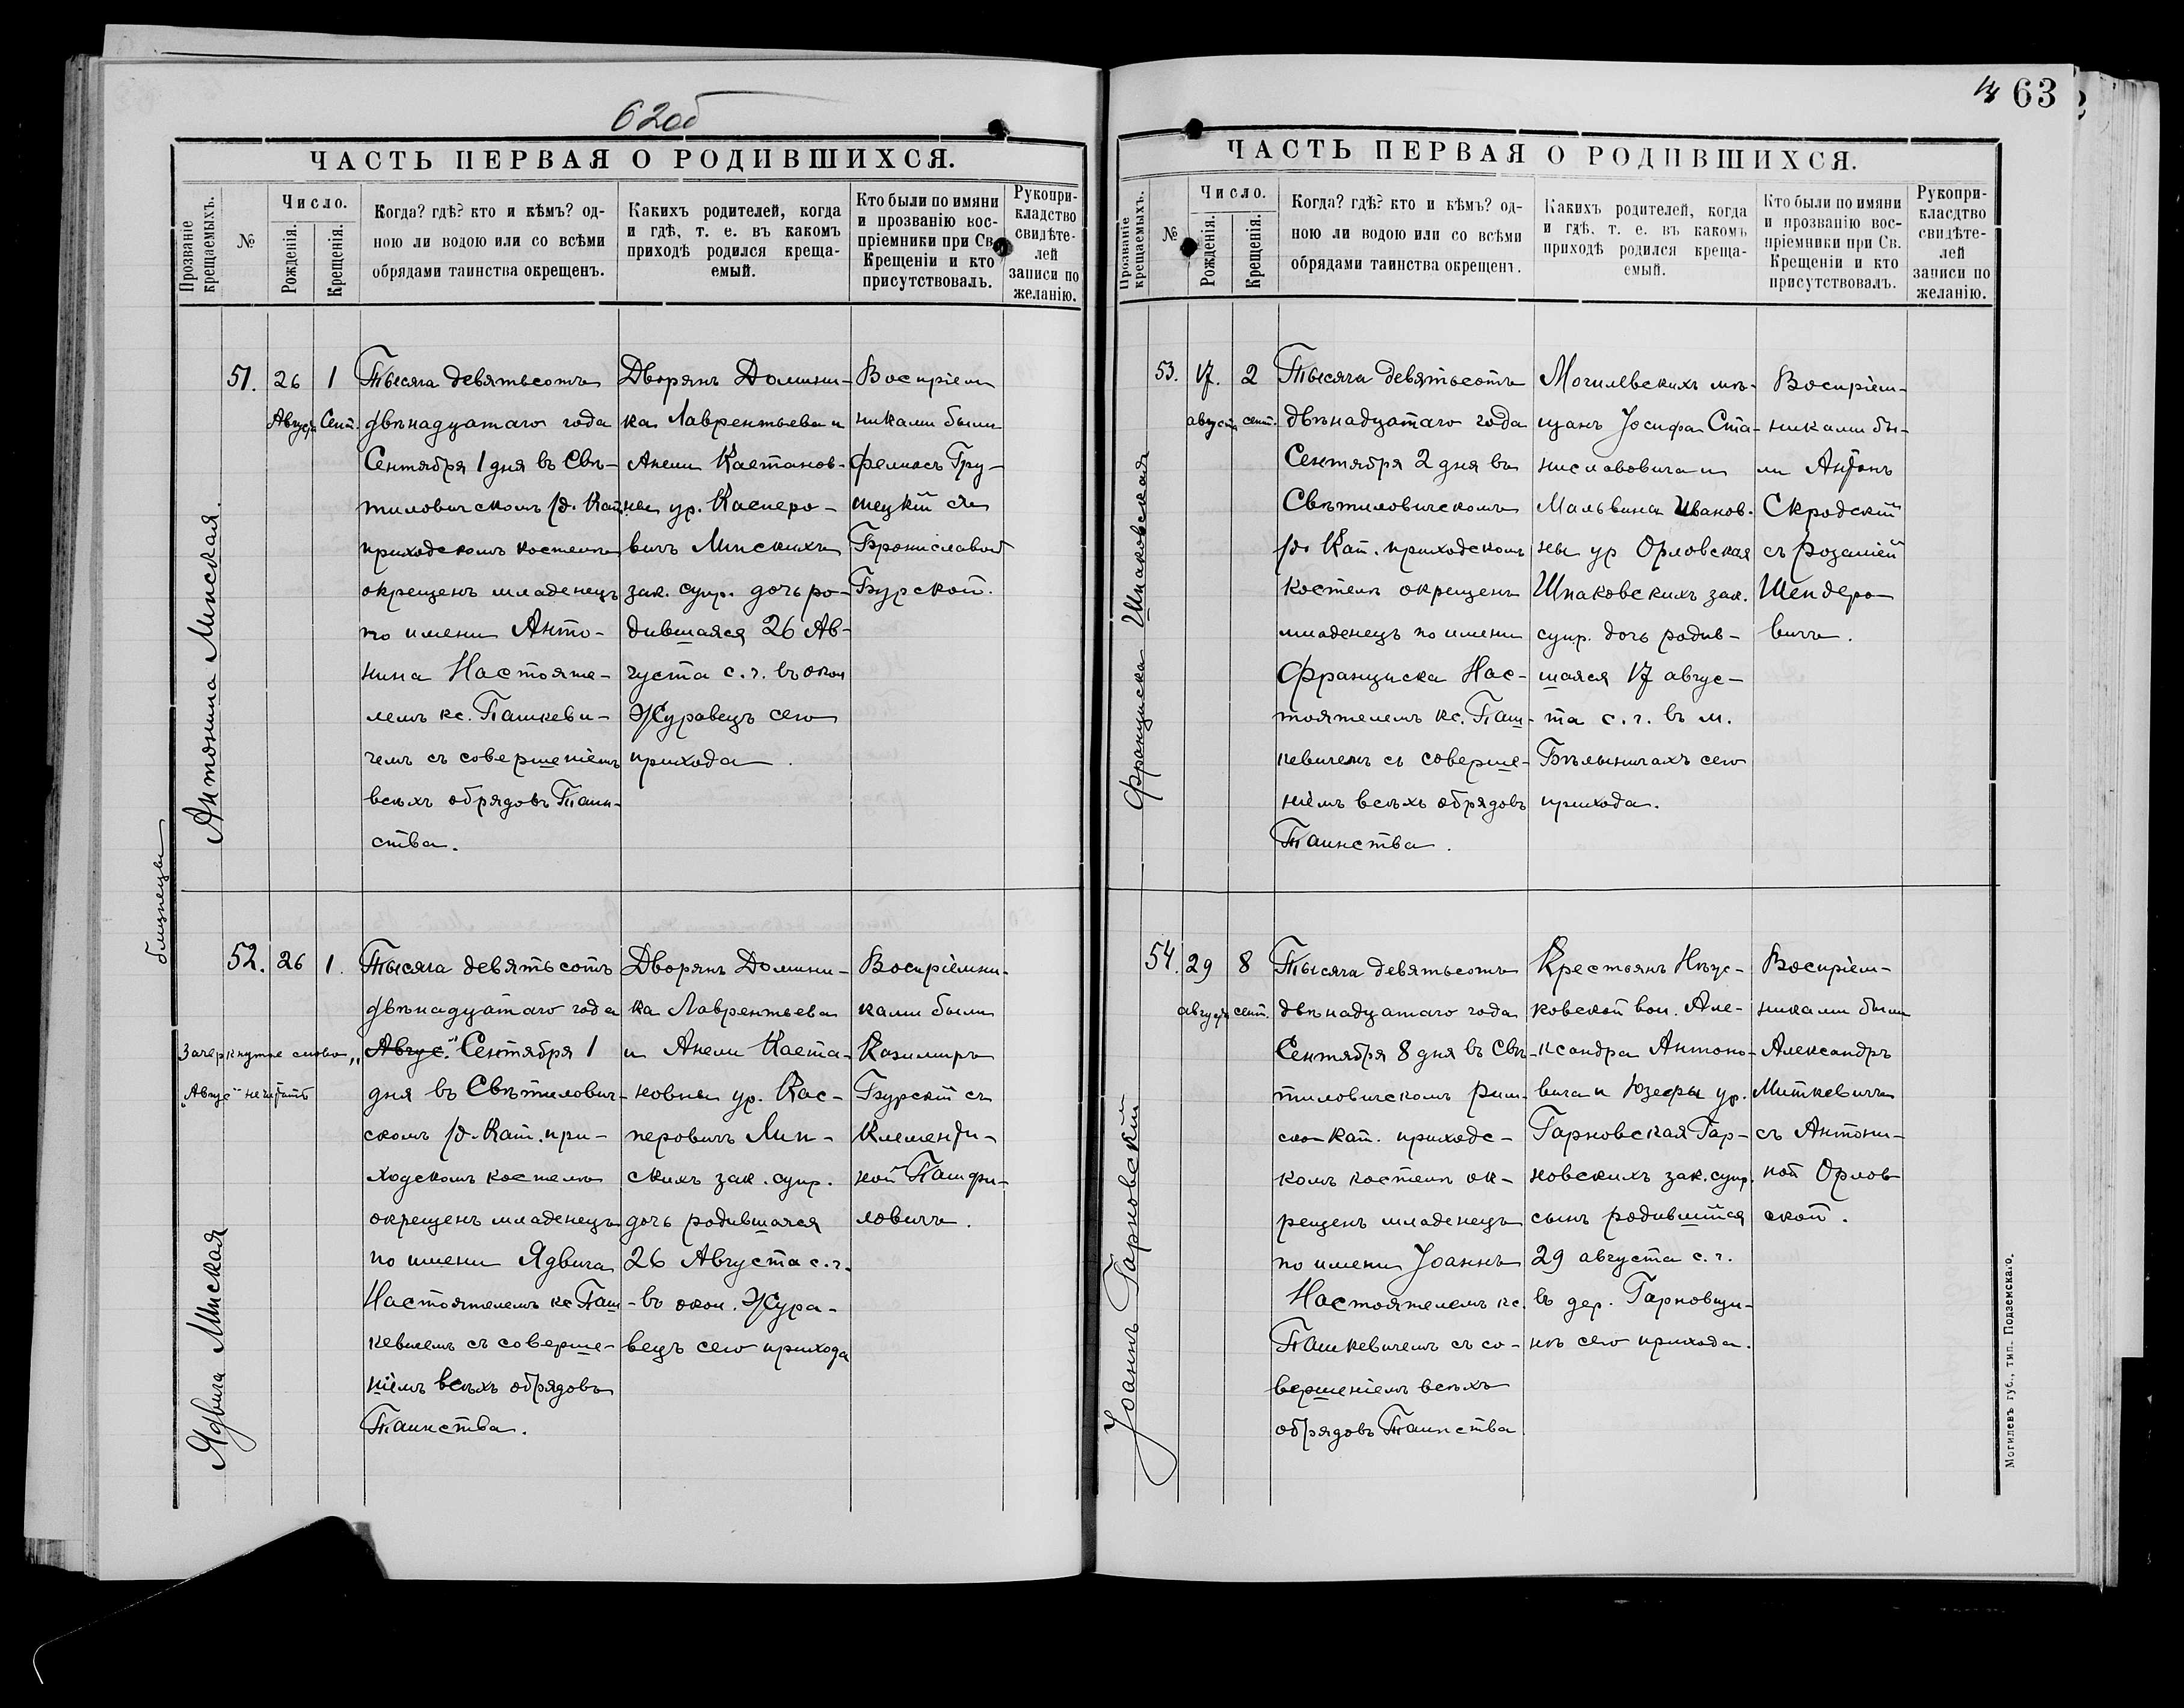 62об
ЧАСТЬ ПЕРВАЯ О РОДИВШИХСЯ.
Прозваніе крещаемыхъ.
№
Число.
Рожденія.
Крещенія.
Когда? гдѣ? кто и кѣмъ? од-
ною ли водою или со всѣми
обрядами таинства окрещенъ.
Какихъ родителей, когда
и гдѣ, т. е. въ какомъ
приходѣ родился креща-
емый.
Кто были по имяни
и прозванію вос-
пріемники при Св.
Крещеніи и кто
присутствовалъ.
Рукопри-
кладство
свидѣте-
лей
записи по
желанію.
близнецы
Антонина Минская
51.
26
Августа
1
Сент.
Тысяча девятьсотъ
двѣнадцатаго года
Сентября 1 дня въ Свѣ-
тиловичскомъ р. Кат.
приходскомъ костелѣ
окрещенъ младенецъ
по имени Анто-
нина Настояте-
лемъ кс. Пашкеви-
чемъ съ совершеніемъ
всѣхъ обрядовъ Таин-
ства.
Дворянъ Домини-
ка Лаврентьева и
Анели Каетанов-
ны ур. Касперо-
вичъ Минскихъ
зак. супр. дочь ро-
дившаяся 26 Ав-
густа с. г. въ окол
Журавецъ сего
прихода.
Воспріем
никами были
Феликсъ Гру-
шецкій съ
Брониславой
Бурской.
Ядвига Минская
Зачеркнутое слово
„Авгус" не читать
52.
26
1.
Тысяча девятьсотъ
двѣнадцатаго года
„Авгус." Сентября 1
дня въ Свѣтилович-
скомъ р. Кат. при-
ходскомъ костелѣ
окрещенъ младенецъ
по имени Ядвига
Настоятелемъ кс Паш-
кевичемъ съ соверше-
ніемъ всѣхъ обрядовъ
Таинства.
Дворянъ Домини-
ка Лаврентьева
и Анели Каета-
новны ур. Кас-
перовичъ Мин-
скихъ зак. супр.
дочь родившаяся
26 Августа с. г.
въ окол. Жура-
вецъ сего прихода
Воспріемни-
ками были
Казимиръ
Бурскій съ
Клементи-
ной Панфи-
ловичъ.
63
ЧАСТЬ ПЕРВАЯ О РОДИВШИХСЯ.
Прозваніе крещаемыхъ.
№
Число.
Рожденія.
Крещенія.
Когда? гдѣ? кто и кѣмъ? од-
ною ли водою или со всѣми
обрядами таинства окрещенъ.
Какихъ родителей, когда
и гдѣ, т. е. въ какомъ
приходѣ родился креща-
емый.
Кто были по имяни
и прозванію вос-
пріемники при Св.
Крещеніи и кто
присутствовалъ.
Рукопри-
класдтво
свидѣте-
лей
записи по
желанію.
Франциска Шпаковская
53.
17.
августа
2
сент.
Тысяча девятьсотъ
двѣнадцатаго года
Сентября 2 дня въ
Свѣтиловичскомъ
р. Кат. приходскомъ
костелѣ окрещенъ
младенецъ по имени
Франциска Нас-
тоятелемъ кс. Паш-
кевичемъ съ соверше-
ніемъ всѣхъ обрядовъ
Таинства.
Могилевскихъ мѣ-
щанъ Іосифа Ста-
ниславовича и
Мальвина Иванов-
ны ур Орловская
Шпаковскихъ зак.
супр. дочь родив-
шаяся 17 авгус-
та с. г. въ м.
Бѣлыничахъ сего
прихода.
Воспріем-
никами бы-
ли Антонъ
Скродскій
съ Розаліей
Шендеро-
вичъ.
Іоаннъ Гарновскій
54.
29
августа
8
сент.
Тысяча девятьсотъ
двѣнадцатаго года
Сентября 8 дня въ Свѣ-
тиловичскомъ рим-
ско-кат. приходс-
комъ костелѣ ок-
рещенъ младенецъ
по имени Іоаннъ
Настоятелемъ кс.
Пашкевичемъ съ со-
вершеніемъ всѣхъ
обрядовъ Таинства
Крестьянъ
ковской вол. Але-
ксандра Антоно-
вича и Юзефы ур.
Гарновская Гар-
новскихъ зак. супр.
сынъ родившійся
29 августа с. г.
въ дер. Гарновщи-
нѣ сего прихода.
Воспріем-
никами были
Александръ
Миткевичъ
съ Антони-
ной Орлов
ской.
Могилевъ губ., тип. Подземскаго.